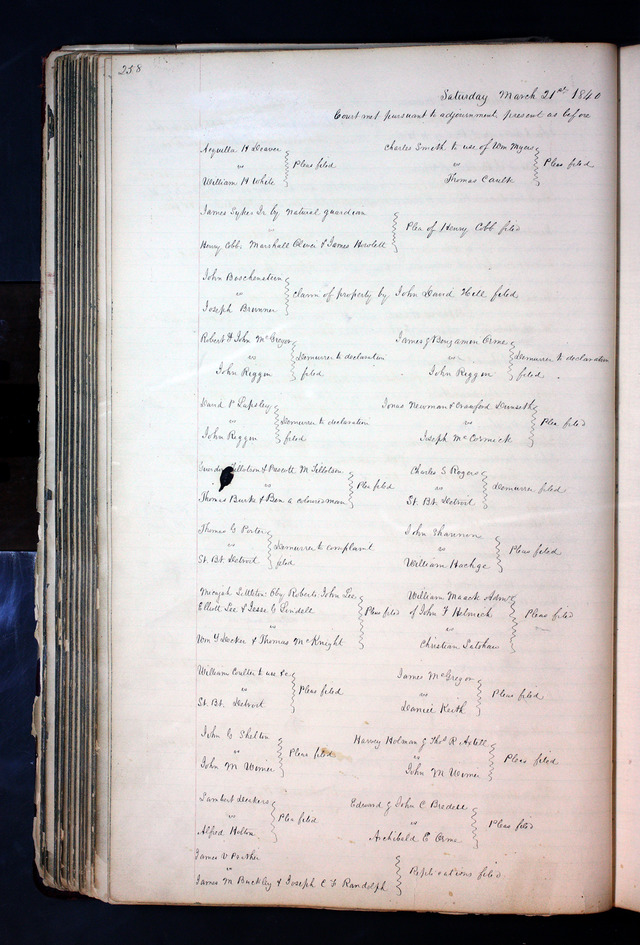 258
Saturday March 21st 1840
Court met pursuant to adjournment present as before
Aequilla H Deaver
vs
William H White
Pleas filed
Charles Smith to use of Wm Myers
vs
Thomas Caulk
Pleas filed
James Sykes Jr by natural guardian
vs
Henry Cobb Marshall Oliver & James Howlett
Plea of Henry Cobb filed
John Boschenstein
vs
Joseph Brunner
Claim of property by John David Hill filed
Robert & John McGregor
vs
John Reggon
Demurrer to declaration
filed
James & Benjamin Orme
vs
John Reggon
Demurrer to declaration
filed
David P Lapsley
vs
John Reggon
Demurrer to declaration
filed
Jonas Newman & Crawford
vs
Joseph McCormick
Plea filed
Tillotson & Prescott M Tillotson
vs
Thomas Burk & Ben a coloured man
Plea filed
Charles S Rogers
vs
St. Bt. Detroit
Demurrer filed
Thomas G Porter
vs
St. Bt. Detroit
Demurrer to complaint
filed
John Shannon
vs
William Hachge
Pleas filed
Micajah Littleton Roberts John Lee
Elliott Lee & Jesse G Lindell
vs
Wm Y Decker & Thomas McKnight
Pleas filed
William Maack Admr
of John F Helmich
vs
Christian Latshaw
Pleas filed
William Coulter to use &c
vs
St. Bt. Detroit
Pleas filed
James McGregor
vs
Daniel Keith
Pleas filed
John C Shelton
vs
John M Wimer
Pleas filed
Harvey Holman & Thos R
vs
John M Wimer
Pleas filed
Lambert Deckers
vs
Alfred Holton
Plea filed
Edward & John C Bredell
vs
Archibald C Orme
Pleas filed
James V Prather
vs
James M Buckley & Joseph C C Randolph
Replications filed